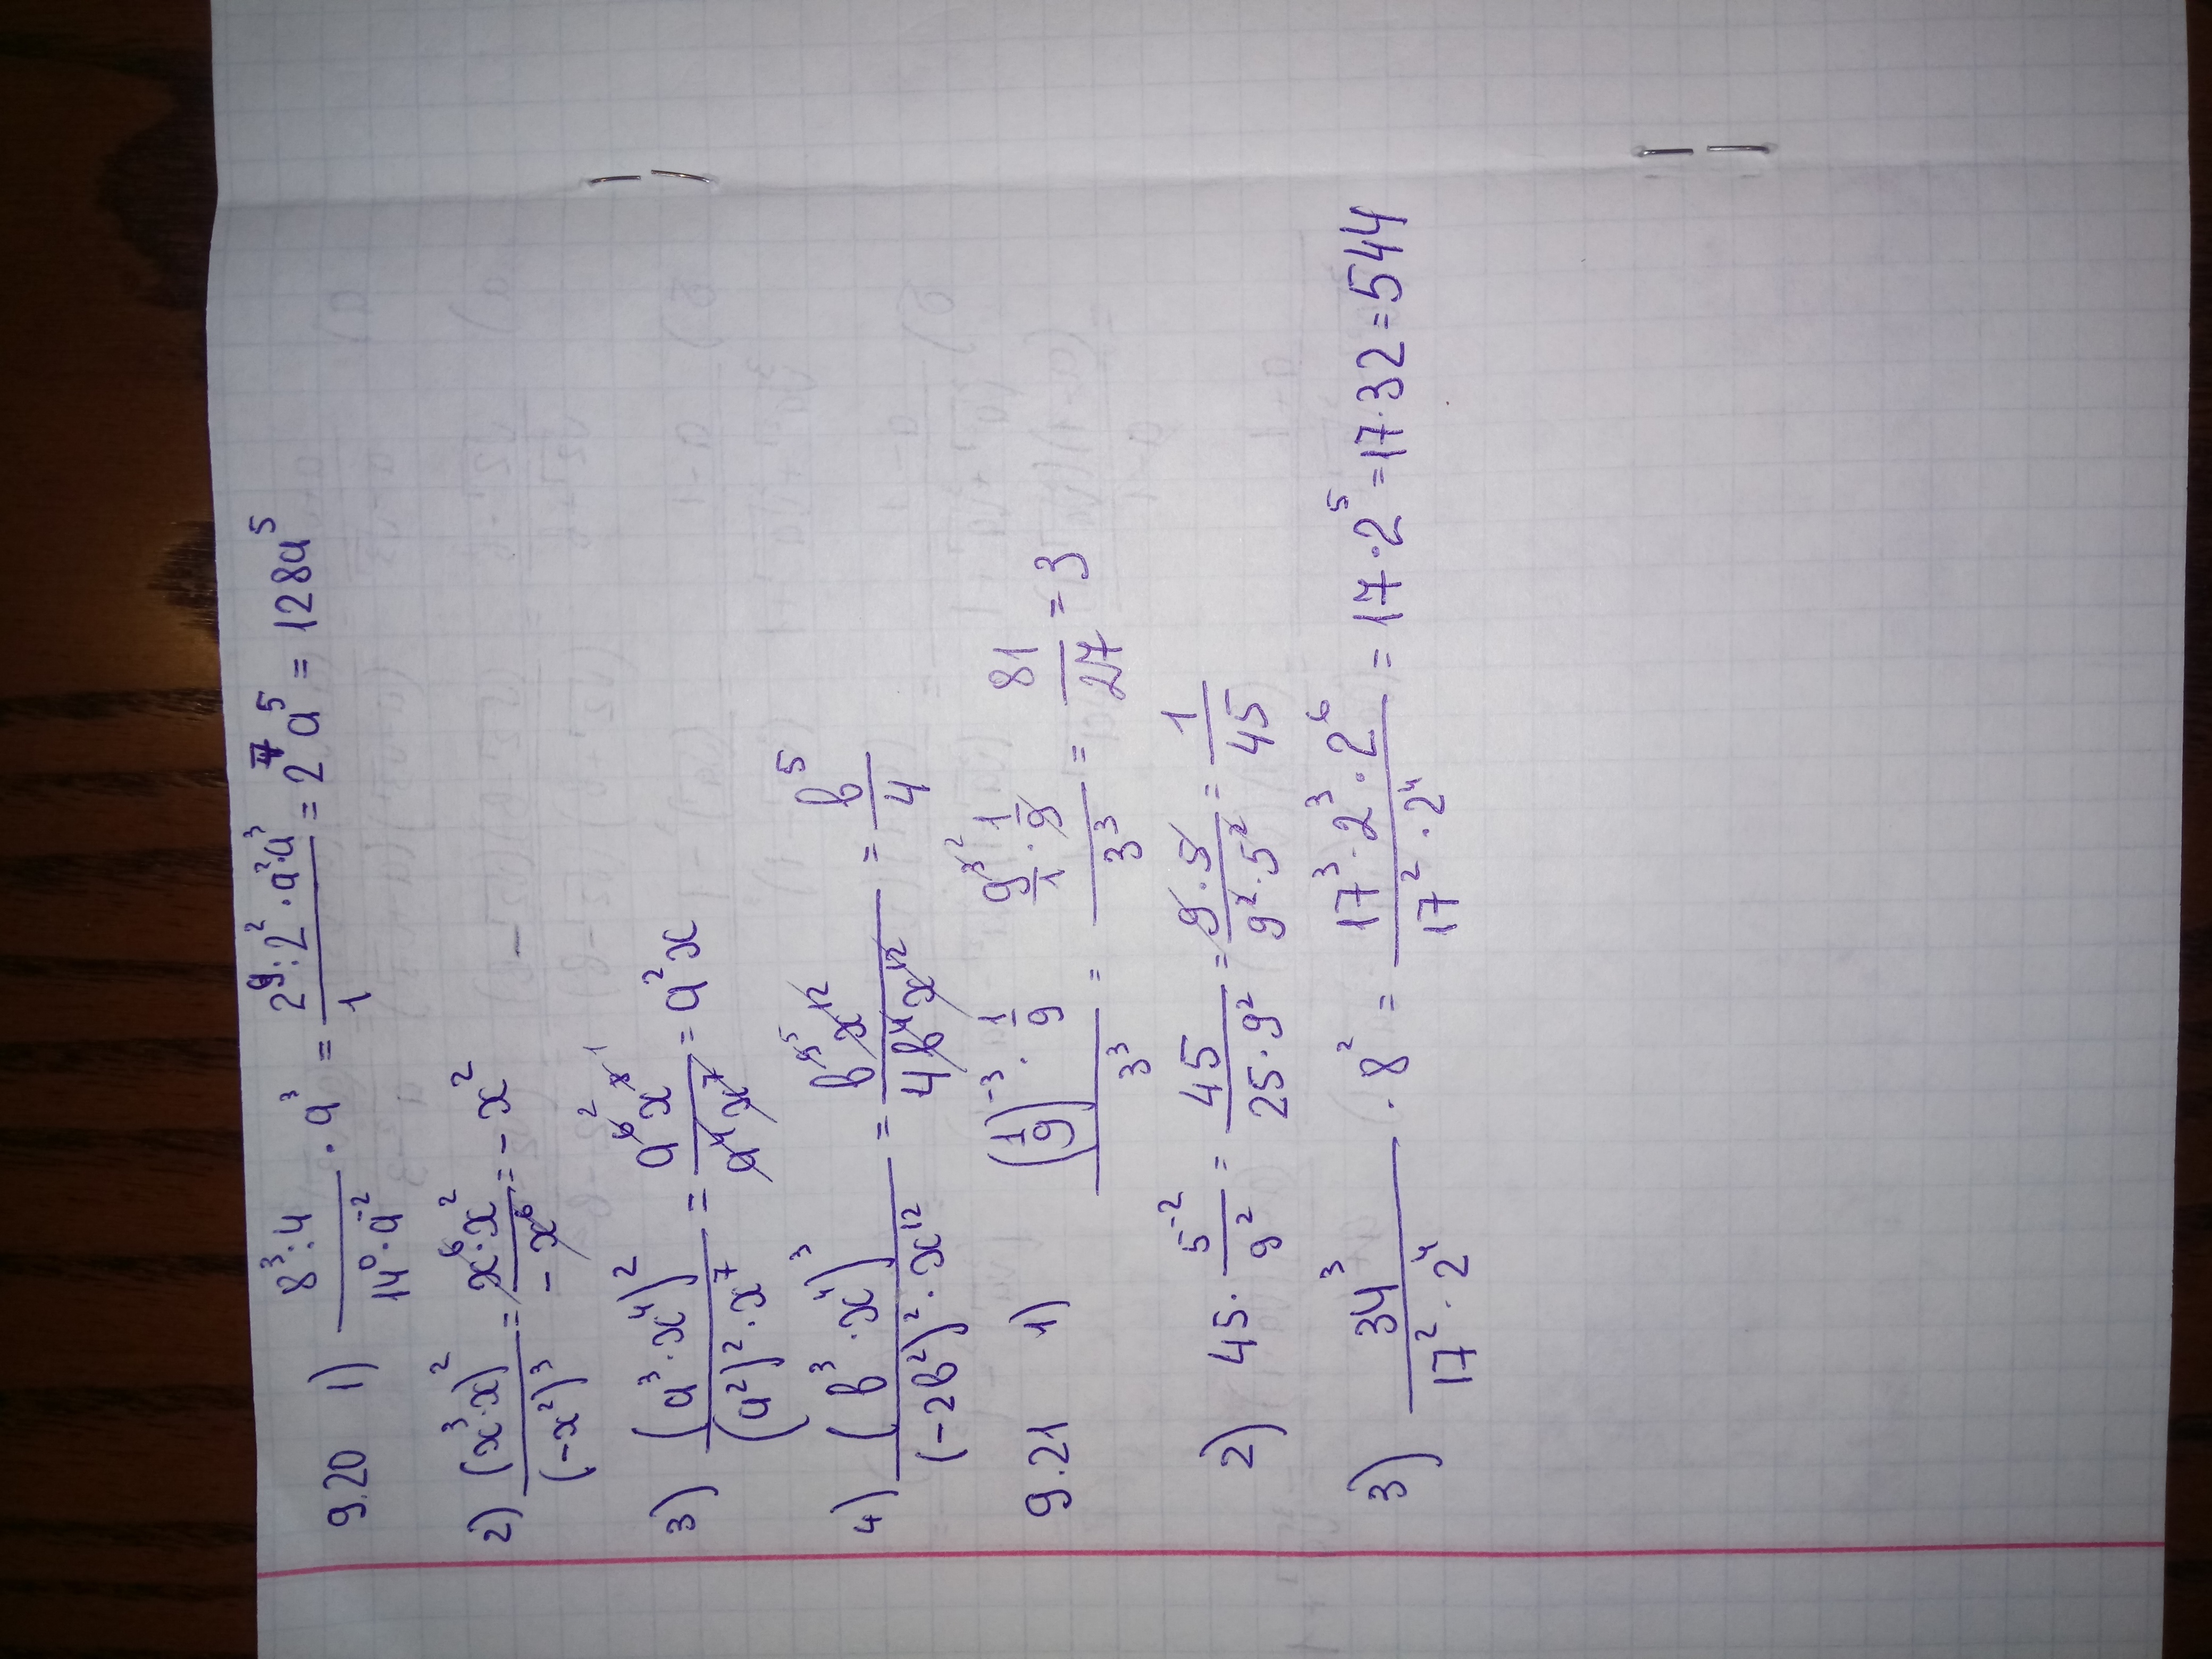 9.20 1) 8³:4/14⁰·a⁻² · a³ = 2⁹:2²·a²·a³/1 = 2⁷a⁵ = 128a⁵
2) (x³·x)²/(-x²)³ = x⁶·x²/-x⁶ = -x²
3) (a³·x⁴)²/(a²)²·x⁷ = a⁶ ² x⁸ ¹/a⁴x⁷ = a²x
4) (b³·x⁴)³/(-2b²)²·x¹² = b⁹ ⁵ x¹²/4b⁴x¹² = b⁵/4
9.21 1) (1/9)⁻³·1/9/3³ = 9³ ²/1·1/9/3³ = 81/27 = 3
2) 45·5⁻²/9² = 45/25·9² = 9·5/9²·5² = 1/45
3) 34³/17²·2⁴ · 8² = 17³·2³·2⁶/17²·2⁴ = 17·2⁵ = 17·32 = 544